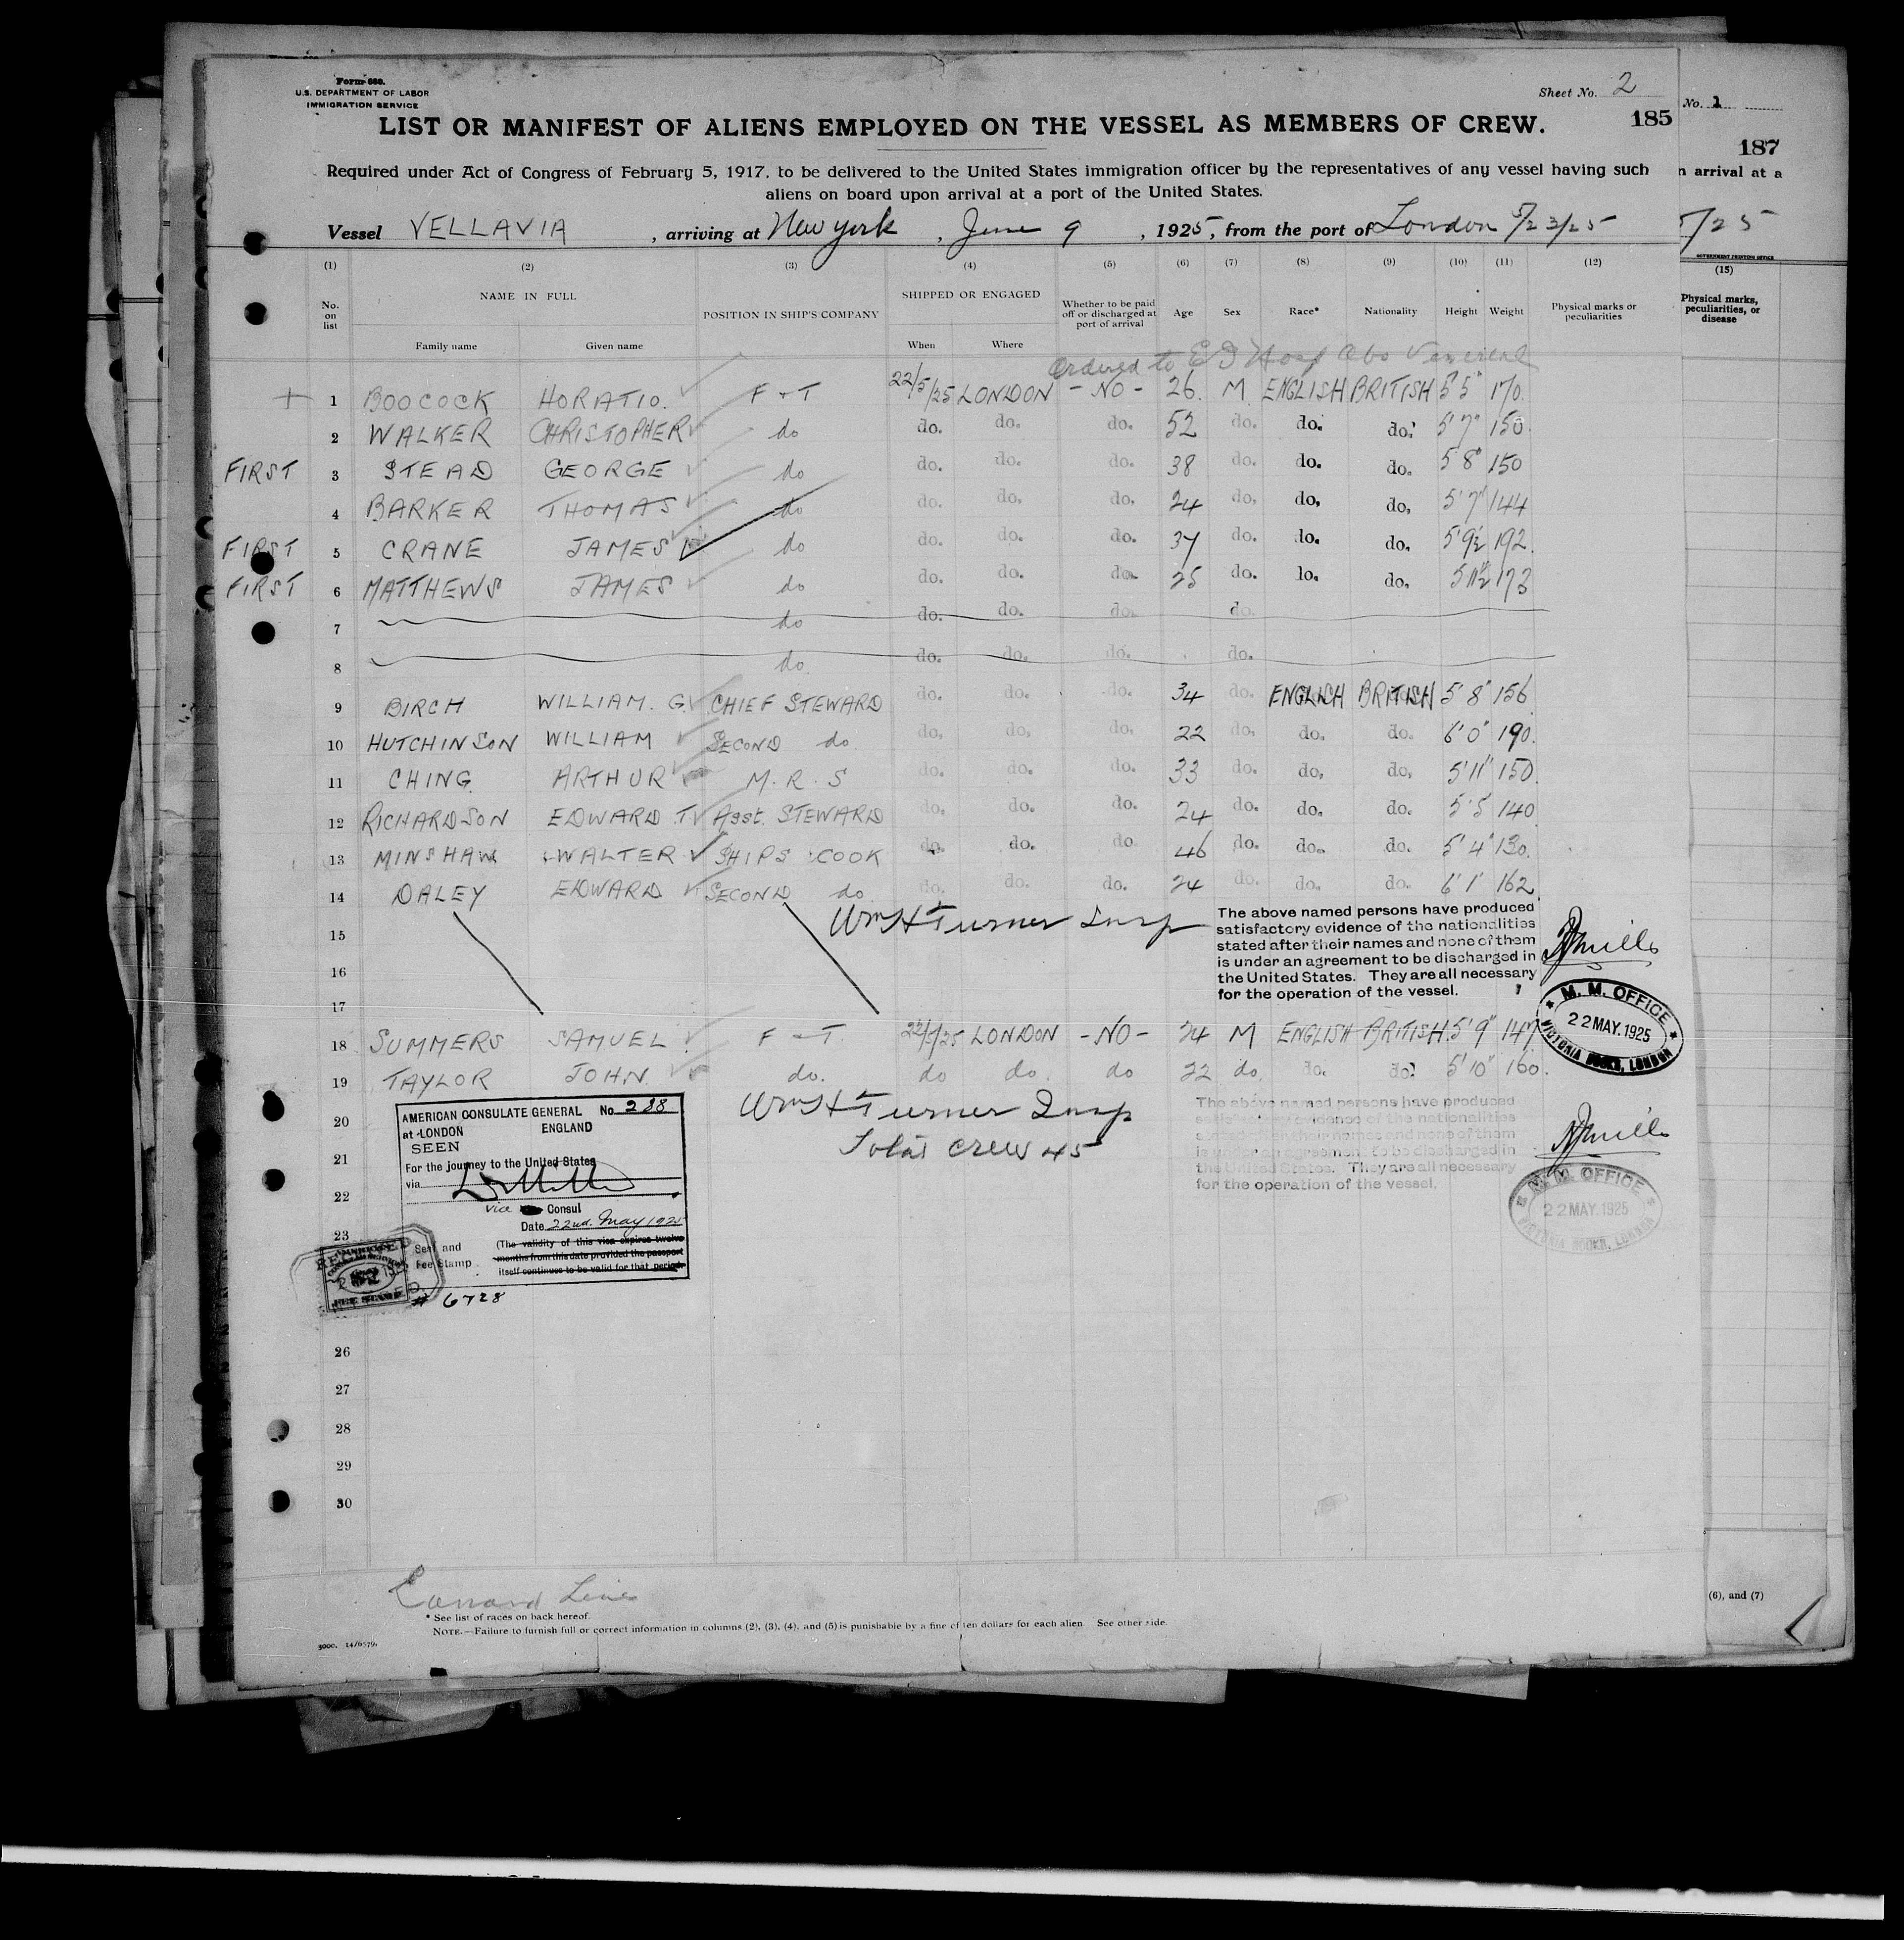 Form 680.
U.S. DEPARTMENT OF LABOR
IMMIGRATION SERVICE
Sheet No. 2
No. 1
185
187
LIST OR MANIFEST OF ALIENS EMPLOYED ON THE VESSEL AS MEMBERS OF CREW.
Required under Act of Congress of February 5, 1917, to be delivered to the United States immigration officer by the representatives of any vessel having such
aliens on board upon arrival at a port of the United States.
n arrival at a
Vessel VELLAVIA, arriving at New York, June 9, 1925, from the port of London 5/23/25
5/25
GOVERNMENT PRINTING OFFICE
(1) (2) (3) (4) (5) (6) (7) (8) (9) (10) (11) (12) (15)
No. on list NAME IN FULL POSITION IN SHIP'S COMPANY SHIPPED OR ENGAGED Whether to be paid off or discharged at port of arrival Age Sex Race* Nationality Height Weight Physical marks or peculiarities
Physical marks, peculiarities, or disease
Family name Given name When Where
Ordered to E I Hosp Venereal
+ 1 BOOCOCK HORATIO. F + T 22/5/25 LONDON - NO - 26. M. ENGLISH BRITISH 5' 5" 170.
2 WALKER CHRISTOPHER do do. do. do. 52 do. do. do. 5' 7" 150.
FIRST 3 STEAD GEORGE do do. do. do. 38 do. do. do. 5' 8" 150
4 BARKER THOMAS do do. do. do. 24 do. do. do. 5' 7" 144
FIRST 5 CRANE JAMES do do. do. do. 37 do. do. do. 5' 9½ 192.
FIRST 6 MATTHEWS JAMES do do. do. do. 25 do. lo. do. 5' 11½ 173
7 do do. do. do. do.
8 do do. do. do. do.
9 BIRCH WILLIAM. G. CHIEF STEWARD do. do. do. 34 do. ENGLISH BRITISH 5' 8" 156
10 HUTCHINSON WILLIAM SECOND do do. do. do. 22 do. do. do. 6' 0" 190.
11 CHING. ARTHUR M. R. S do. do. do. 33 do. do. do. 5' 11" 150.
12 RICHARDSON EDWARD. T. Asst. STEWARD do. do. do. 24 do. do. do. 5' 5 140
13 MINSHAW WALTER SHIPS COOK do. do. do 46 do. do. do. 5' 4" 130.
14 DALEY EDWARD SECOND do do. do. do. 24 do. do. do. 6' 1" 162
Wm H Turner Insp
The above named persons have produced
satisfactory evidence of the nationalities
stated after their names and none of them
is under an agreement to be discharged in
the United States. They are all necessary
for the operation of the vessel.
15
16
17
M. M. OFFICE
22 MAY. 1925
VICTORIA DOCKS, LONDON
18 SUMMERS SAMUEL. F - T. 22/5/25 LONDON - NO - 24 M ENGLISH BRITISH. 5' 9" 147
19 TAYLOR JOHN. do. do do. do 22 do. do. do. 5' 10" 160.
Wm H Turner Insp
Total crew 45
The above named persons have produced
satisfactory evidence of the nationalities
stated after their names and none of them
is under an agreement to be discharged in
the United States. They are all necessary
for the operation of the vessel.
M. M. OFFICE
22 MAY. 1925
VICTORIA DOCKS, LONDON
AMERICAN CONSULATE GENERAL No. 288
at LONDON ENGLAND
SEEN
For the journey to the United States
via
vice Consul
Date 22nd. May 1925
Seal and
Fee Stamp
(The validity of this visa expires twelve
months from this date provided the passport
itself continues to be valid for that period.
# 6728
20
21
22
23
26
27
28
29
30
Cunard Line
* See list of races on back hereof.
NOTE.—Failure to furnish full or correct information in columns (2), (3), (4), and (5) is punishable by a fine of ten dollars for each alien. See other side.
(6), and (7)